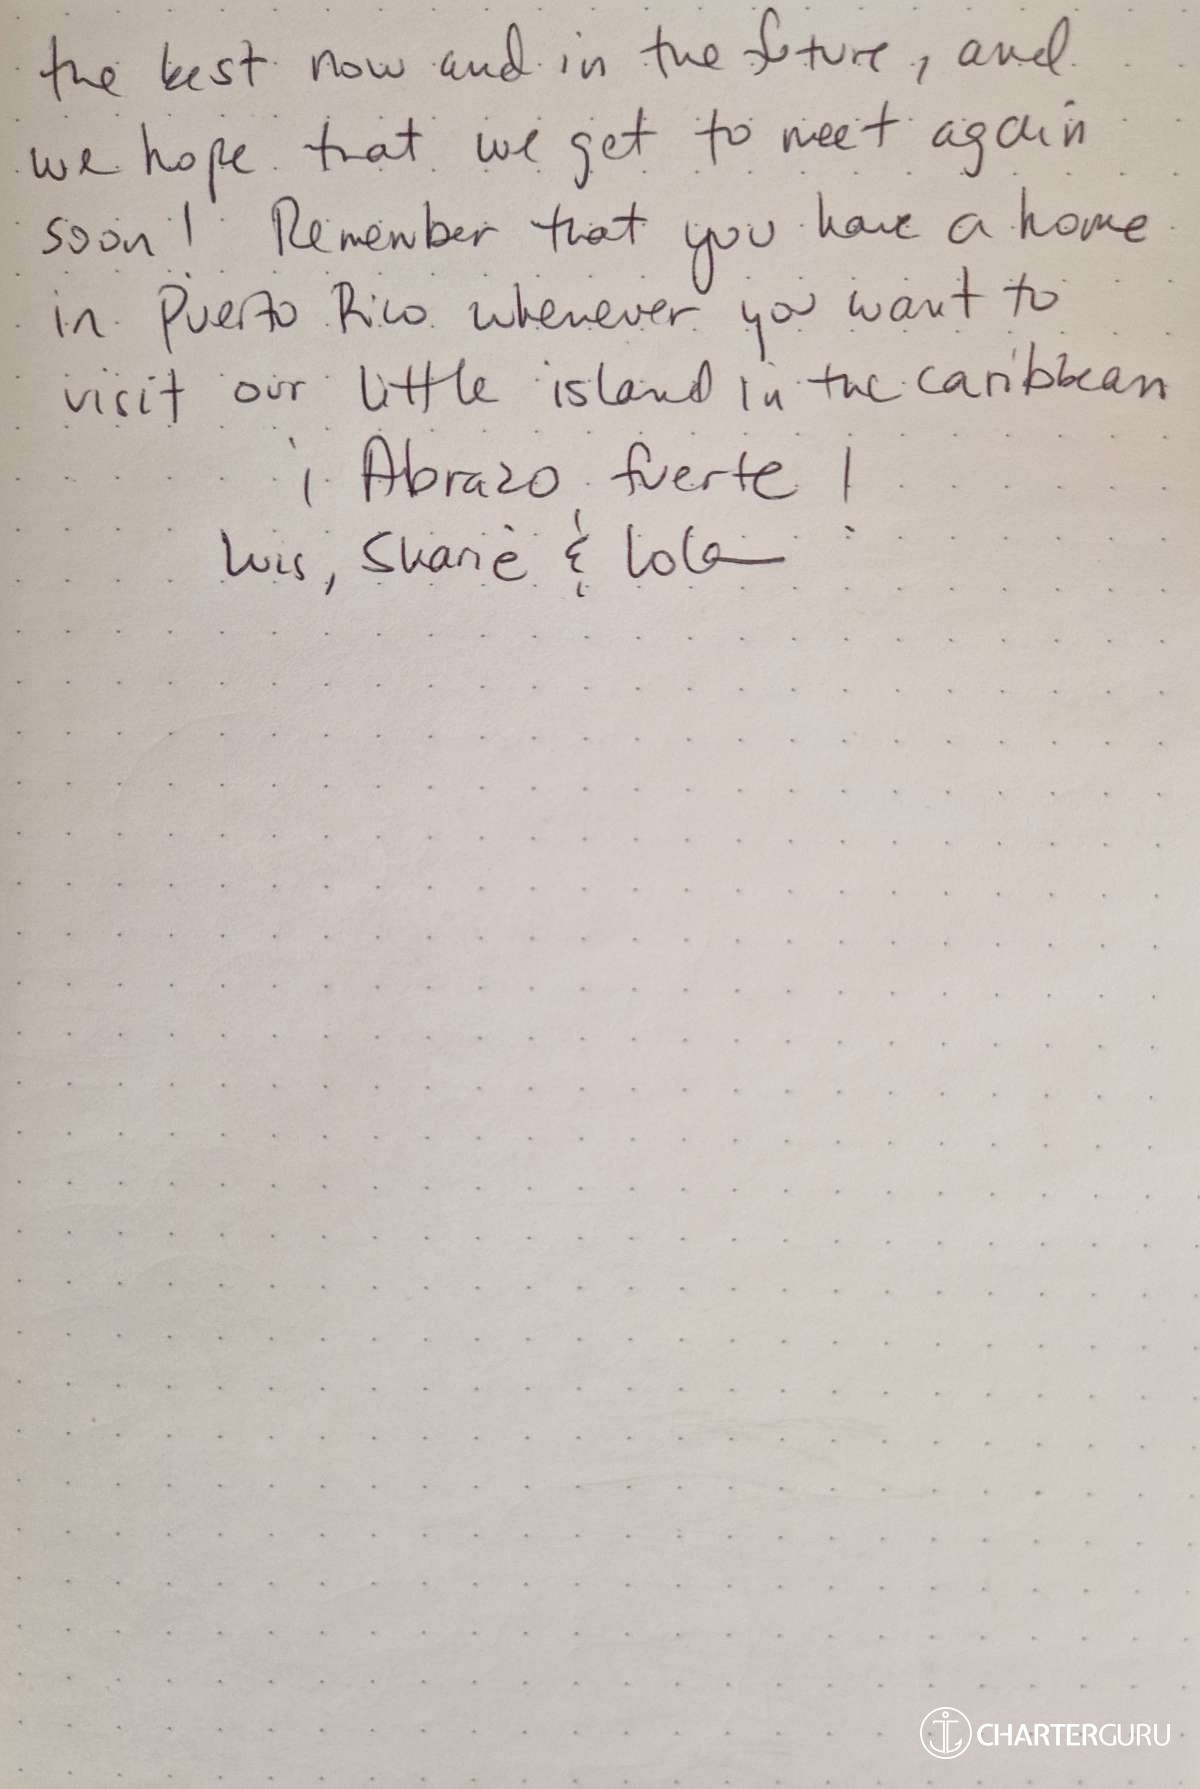 the best now and in the future, and
we hope that we get to meet again
soon! Remember that you have a home
in Puerto Rico whenever you want to
visit our little island in the caribbean
¡Abrazo fuerte!
Luis, Sharie & Lola
CHARTERGURU